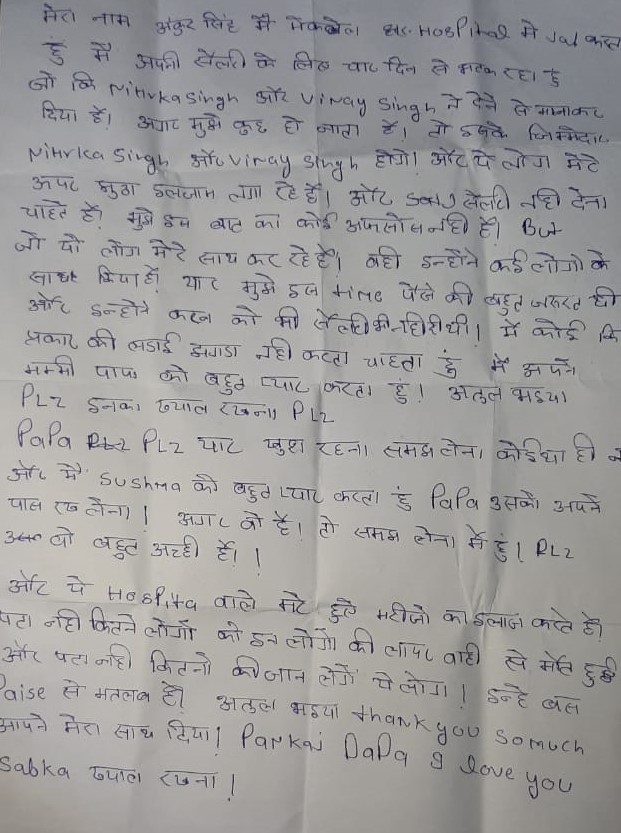 मेरा नाम अंकुर सिंह मैं मेकवेल Hospital मे Job करता
हुं मै अपनी सैलरी के लिए चार दिन से भटक रहा हुं
जो कि Niharika singh और Vinay singh ने देने से मनाकर
दिया हैं। अगर मुझे कुछ हो जाता है। तो इसके जिम्मेदार
Niharica singh और Vinay singh होगें। और ये लोग मेरे
अपर झुठा इलजाम लगा रहे हैं। और सैलरी नही देना
चाहते हैं। मुझे इस बात का कोई अफसोस नही हैं। But
जो यो लोग मेरे साथ कर रहे हैं। वही इन्होंने कई लोगो के
साथ किया हैं। यार मुझे इस time पैसे की बहुत जरुरत थी
और इन्होने करन को भी सैलरी नही दी थी। में कोई कि
प्रकार की लडाई झगडा नही करना चाहता हुं में अपने
मम्मी पापा को बहुत प्यार करता हुं। अतुल भइया
PLz इनका ख्याल रखना PLz
PaPa PLz यार खुश रहना समझ लेना कोईया ही न
और मैं Sushma को बहुत प्यार करता हुं PaPa उसको अपने
पास रख लेना। अगर वो है। तो समझ लेना में हुं। PLz
वो बहुत अच्छी हैं।।
और ये Hospita वाले मरे हुऐ मरीजो का इलाज करते हैं।
पता नही कितने लोगों को इन लोगों की लापर वाही से मौत हुई
और पता नही कितनो की जान लेगें ये लोग। इन्हे बस
Paise से मतलब हैं। अतुल भइया thank you so much
आपने मेरा साथ दिया। Pankaj DaDa I love you
Sabka ख्याल रखना।